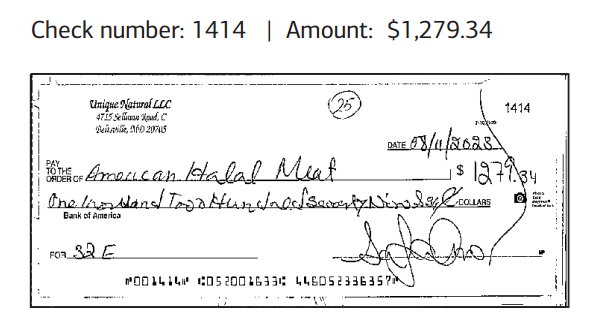 Check number: 1414 | Amount: $1,279.34
Unique Natural LLC
4715 Sellman Road, C
Beltsville, MD 20705
25
1414
DATE 08/11/2023
PAY TO THE ORDER OF American Halal Meat $ 1279.34
One Thousand Two Hundred Seventy Nine DOLLARS
Bank of America
FOR 32 E
⑈001414⑈ ⑆052001633⑆ 446052336357⑈